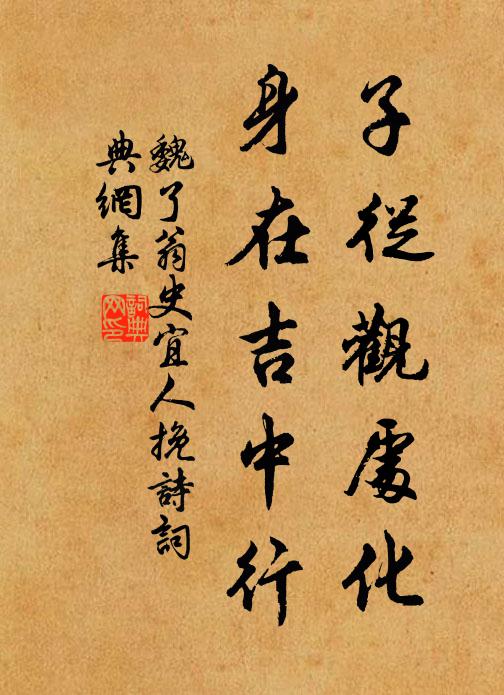 子從觀處化
身在吉中行
魏了翁史宜人挽詩詞
典網集
詞典
网印